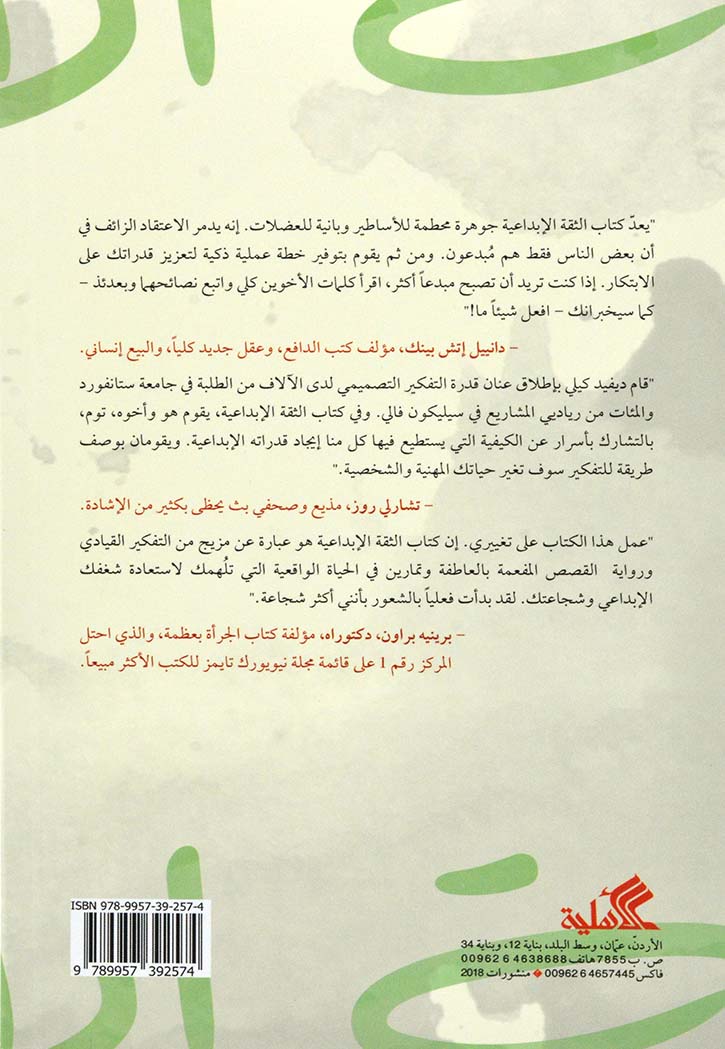 "يعدّ كتاب الثقة الإبداعية جوهرة محطمة للأساطير وبانية للعضلات. إنه يدمر الاعتقاد الزائف في
أن بعض الناس فقط هم مُبدعون. ومن ثم يقوم بتوفير خطة عملية ذكية لتعزيز قدراتك على
الابتكار. إذا كنت تريد أن تصبح مبدعاً أكثر، اقرأ كلمات الأخوين كلي واتبع نصائحهما وبعدئذ –
كما سيخبرانك – افعل شيئاً ما!"
– دانييل إتش بينك، مؤلف كتب الدافع، وعقل جديد كلياً، والبيع إنساني.
"قام ديفيد كيلي بإطلاق عنان قدرة التفكير التصميمي لدى الآلاف من الطلبة في جامعة ستانفورد
والمئات من رياديي المشاريع في سيليكون فالي. وفي كتاب الثقة الإبداعية، يقوم هو وأخوه، توم،
بالتشارك بأسرار عن الكيفية التي يستطيع فيها كل منا إيجاد قدراته الإبداعية. ويقومان بوصف
طريقة للتفكير سوف تغير حياتك المهنية والشخصية."
– تشارلي روز، مذيع وصحفي بث يحظى بكثير من الإشادة.
"عمل هذا الكتاب على تغييري. إن كتاب الثقة الإبداعية هو عبارة عن مزيج من التفكير القيادي
ورواية القصص المفعمة بالعاطفة وتمارين في الحياة الواقعية التي تلُهمك لاستعادة شغفك
الإبداعي وشجاعتك. لقد بدأت فعلياً بالشعور بأنني أكثر شجاعة."
– برينيه براون، دكتوراه، مؤلفة كتاب الجرأة بعظمة، والذي احتل
المركز رقم 1 على قائمة مجلة نيويورك تايمز للكتب الأكثر مبيعاً.
ISBN 978-9957-39-257-4
9 789957 392574
الأهلية
الأردنّ، عمّان، وسط البلد، بناية 12، وبناية 34
ص. ب 7855 هاتف 00962 6 4638688
فاكس 00962 6 4657445 ◆ منشورات 2018